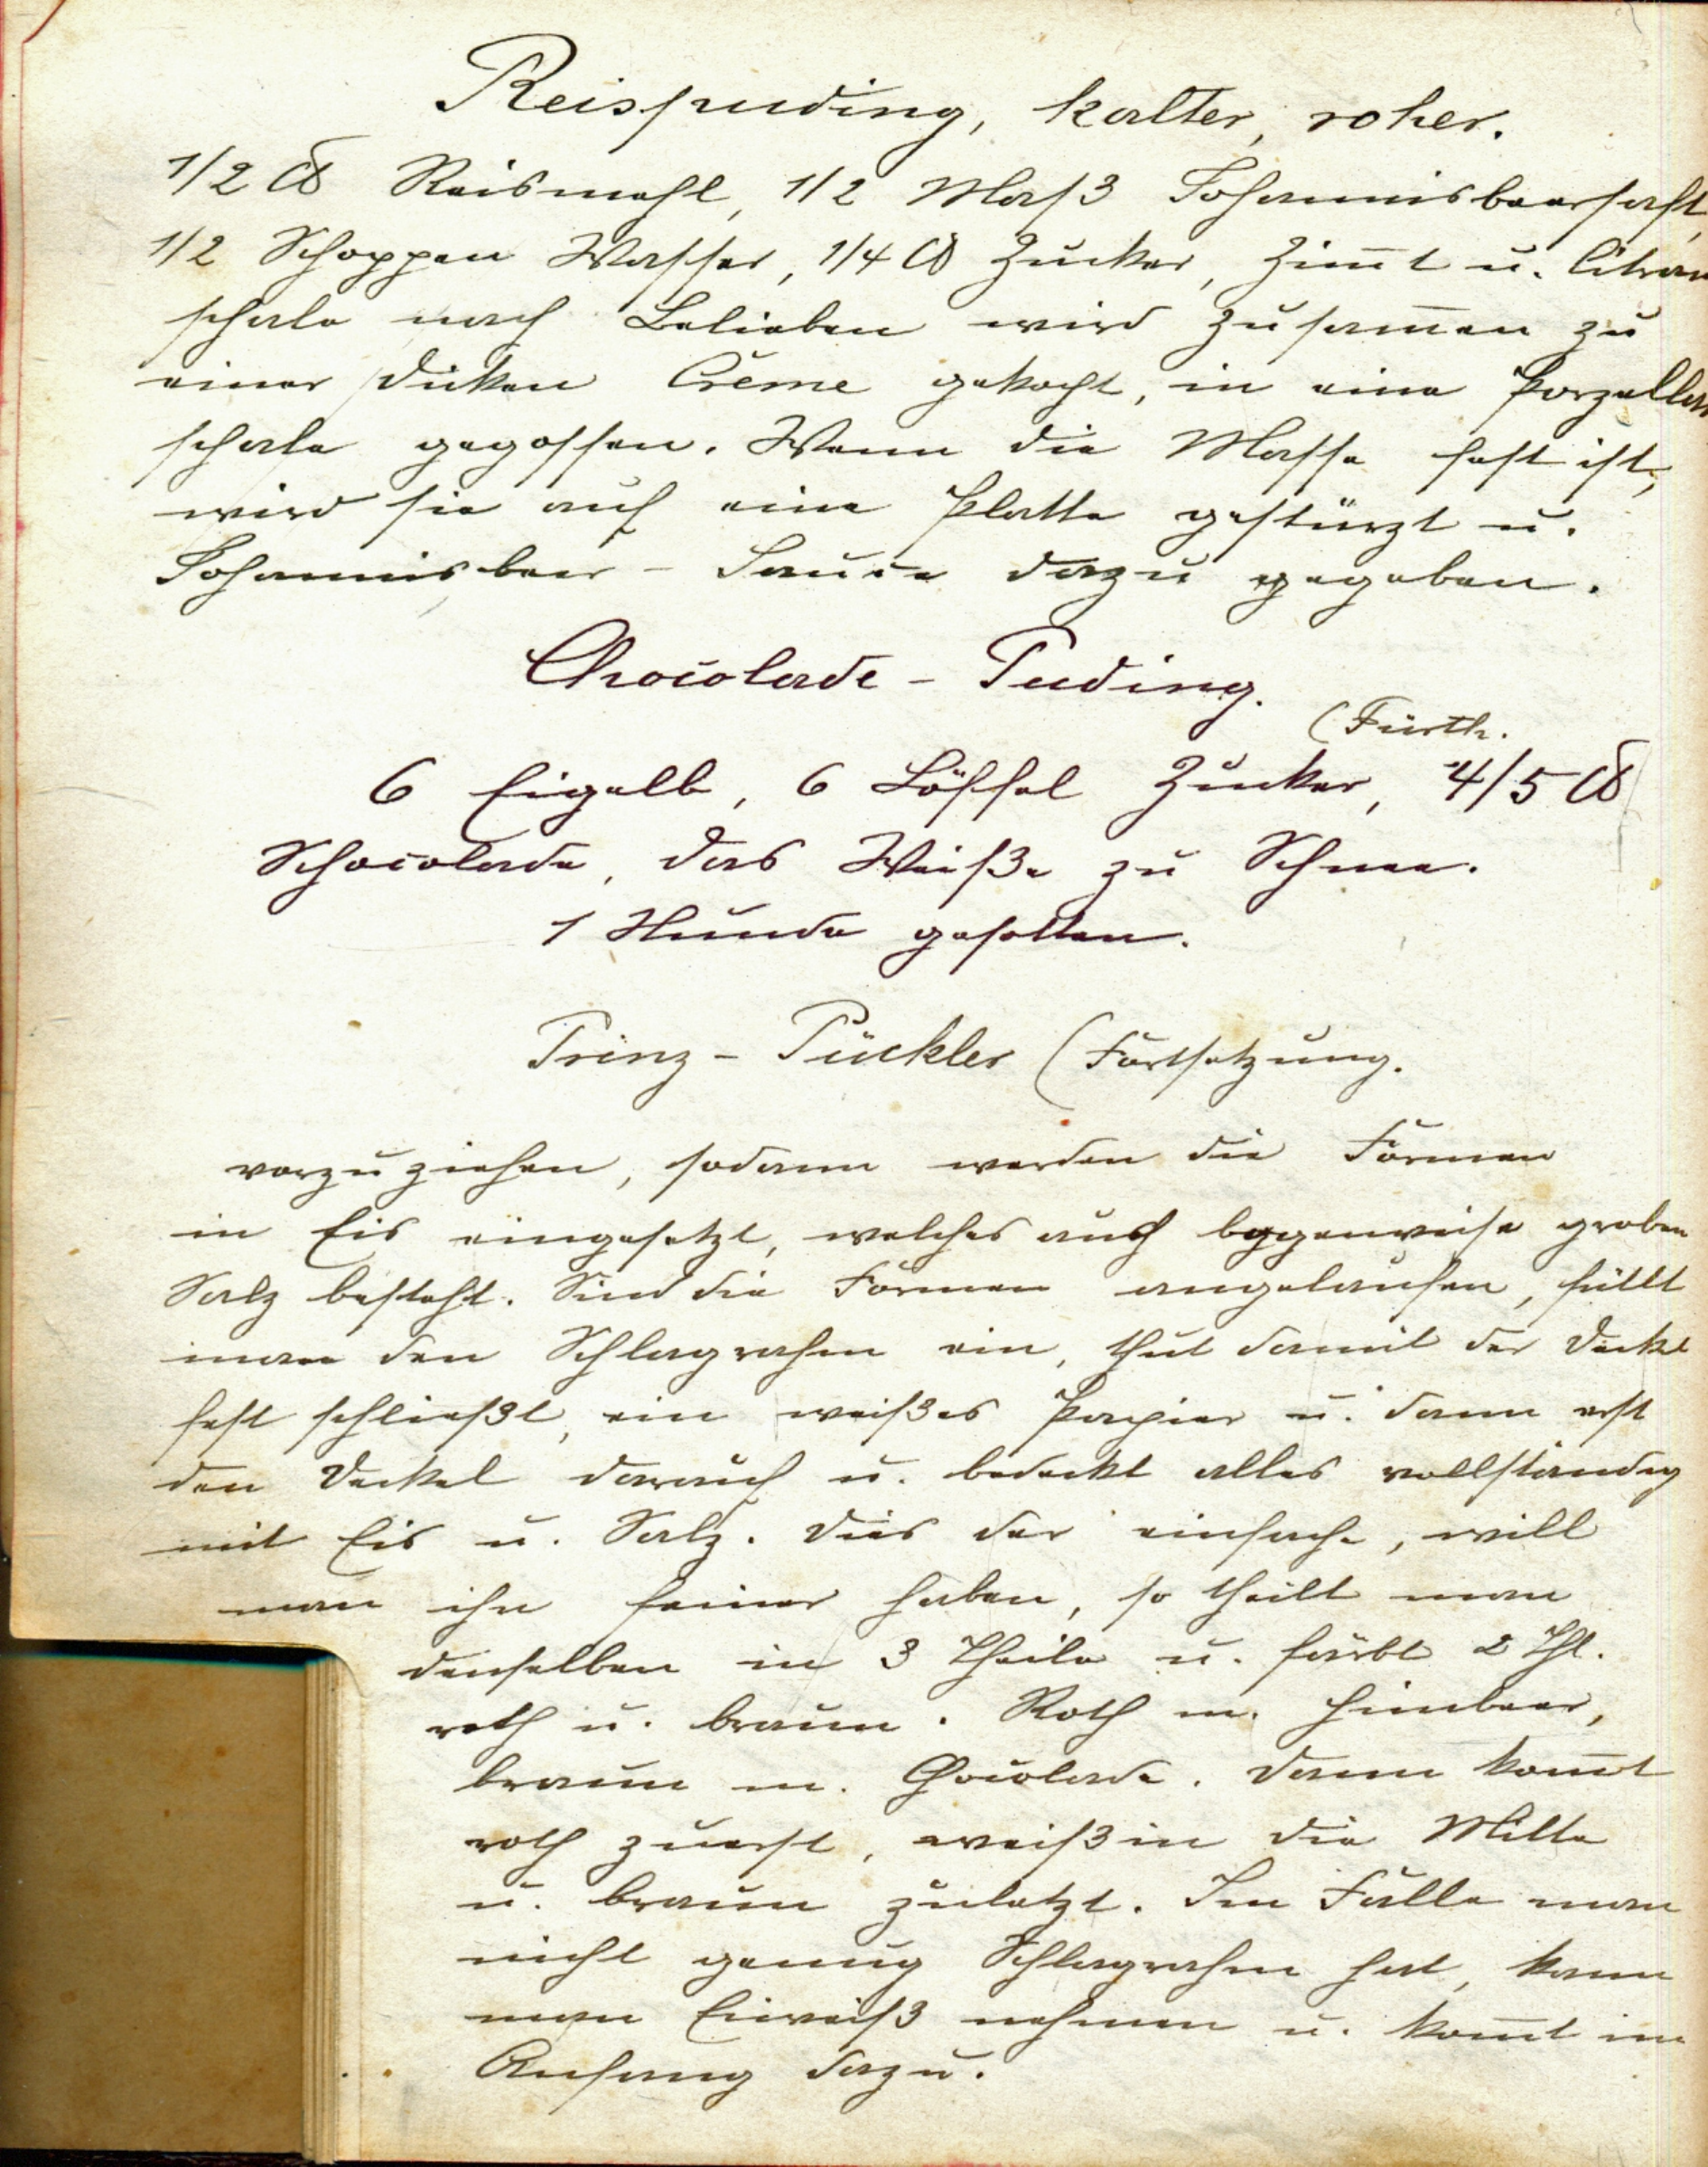 Reispuding, kalter, roher.
1/2 ℔ Reismehl, 1/2 Maß Johannisbeersaft,
1/2 Schoppen Wasser, 1/4 ℔ Zucker, Zim̅t u. Citron
schale nach Belieben wird zusam̅en zu
einer dicken Crème gekocht, in eine Porzellan
schale gegossen. Wenn die Masse fest ist,
wird sie auf eine Platte gestürzt u.
Johannisbeer - Sauce dazu gegeben.
Chocolade - Puding.
(Fürth.
6 Eigelb, 6 Löffel Zucker, 4/5 ℔
Schocolade, das Weiße zu Schnee.
1 Stunde gesotten.
Prinz - Pückler (Fortsetzung.
vorzuziehen, sodann werden die Formen
in Eis eingesetzt, welches aus groben
Salz besteht. Sind die Formen angelaufen, füllt
man den Schlagrahm ein, thut damit der Deckel
fest schließt, ein weißes Papier u. dann erst
den Deckel darauf u. bedeckt alles vollständig
mit Eis u. Salz. Dies der einfache, will
man ihn feiner haben, so theilt man
denselben in 3 Theile u. färbt 2 Thl.
roth u. braun. Roth m. Himbeer,
braun m. Chocolade. Dann kom̅t
roth zuerst, weiß in die Mitte
u. braun zuletzt. Im Falle man
nicht genug Schlagrahm hat, kann
man Eiweiß nehmen u. kom̅t im
Anfang dazu.